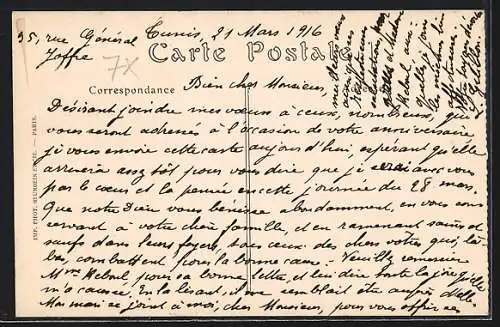 35, rue Général Tunis, 21 Mars 1916
Joffre
Carte Postale
7X
Correspondance
Bien cher Monsieur,
Désirant joindre mes vœux à ceux, nombreux, qui
vous seront adressés à l'occasion de votre anniversaire
je vous envoie cette carte aujourd'hui, espérant qu'elle
arrivera assez tôt pour vous dire que je serai avec vous
par le cœur et la pensée en cette journée du 28 mars.
Que notre Dieu vous bénisse abondamment, en vous con-
servant à votre chère famille, et en ramenant sains et
saufs dans leurs foyers, tous ceux des chers vôtres qui, là-
bas, combattent pour la bonne cause. Veuillez remercier
Mme Hebrul pour sa bonne lettre, et lui dire toute la joie qu'elle
m'a causée. En la lisant, il me semblait être auprès d'elle.
Mon mari se joint à moi, cher Monsieur, pour vous offrir ses
IMP. PHOT. NEURDEIN ET CIE. — PARIS.